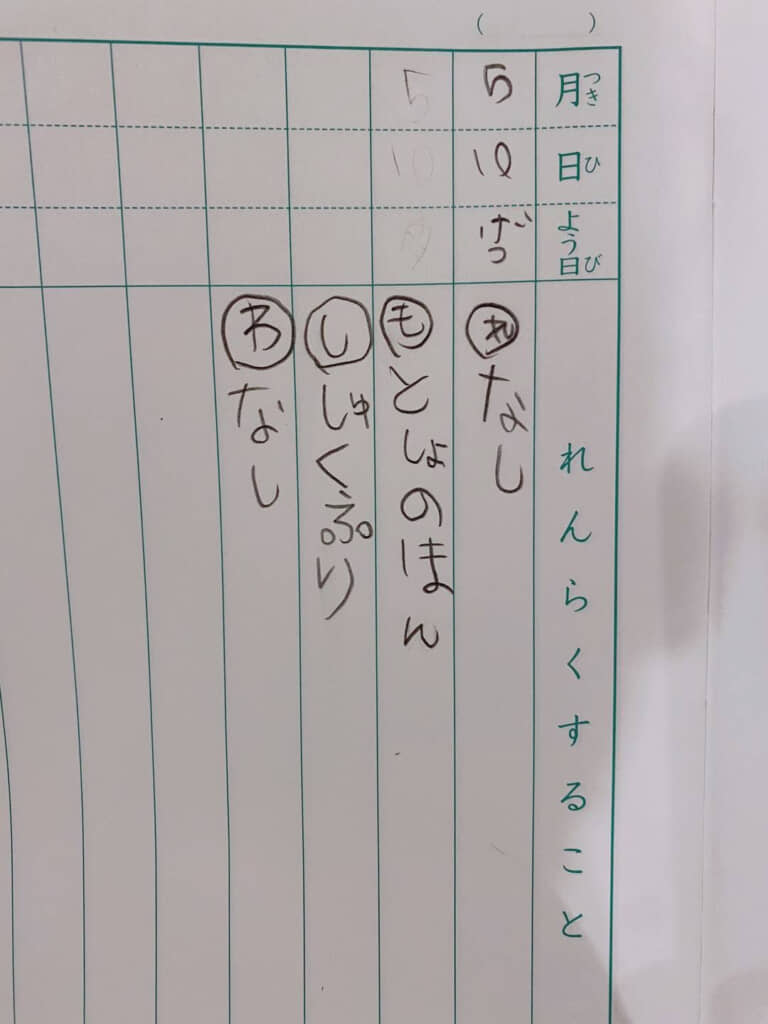 （　　　）
月 つき
日 ひ
よう日 び
れんらくすること
5
10
げつ
れ なし
5
10
も としょのほん
し しゅくぷり
わ なし